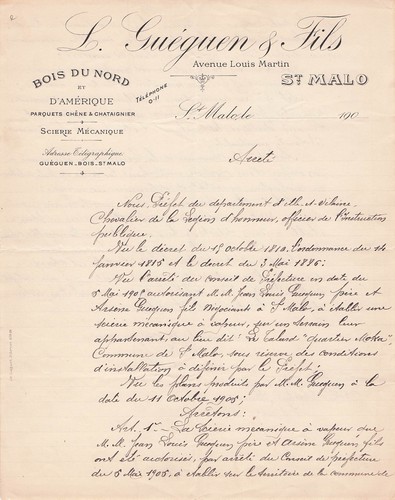 L. Guéguen & Fils
Avenue Louis Martin
St MALO
BOIS DU NORD
ET
D'AMÉRIQUE
PARQUETS CHÊNE & CHATAIGNIER
SCIERIE MÉCANIQUE
Adresse Télégraphique
GUÉGUEN_BOIS_ST MALO
TÉLÉPHONE
0-11
St Malo, le 190
Arrêté
Nous, Préfet du département d'Ille-et-Vilaine
Chevalier de la Légion d'honneur, officier de l'Instruction
publique.
Vu le décret du 15 octobre 1810. L'ordonnance du 14
janvier 1815 et le décret du 3 Mai 1886;
Vu l'arrêté du conseil de Préfecture en date du
5 Mai 1905 autorisant M.M. Jean Louis Gueguen père et
Arsène Gueguen fils négociants à St Malo, à établir une
scierie mécanique à vapeur, sur un terrain leur
appartenant, au lieu dit: Le Talard "quartier Moka",
Commune de St Malo, sous réserve des conditions
d'installation à définir par le Préfet;
Vu les plans produits par M.M. Gueguen à la
date du 11 Octobre 1905;
Arrêtons:
Art. 1er_ La scierie mécanique à vapeur que
M.M. Jean Louis Gueguen père et Arsène Gueguen fils
ont été autorisés, par arrêté du Conseil de préfecture
du 5 Mai 1905, à établir sur le territoire de la commune de